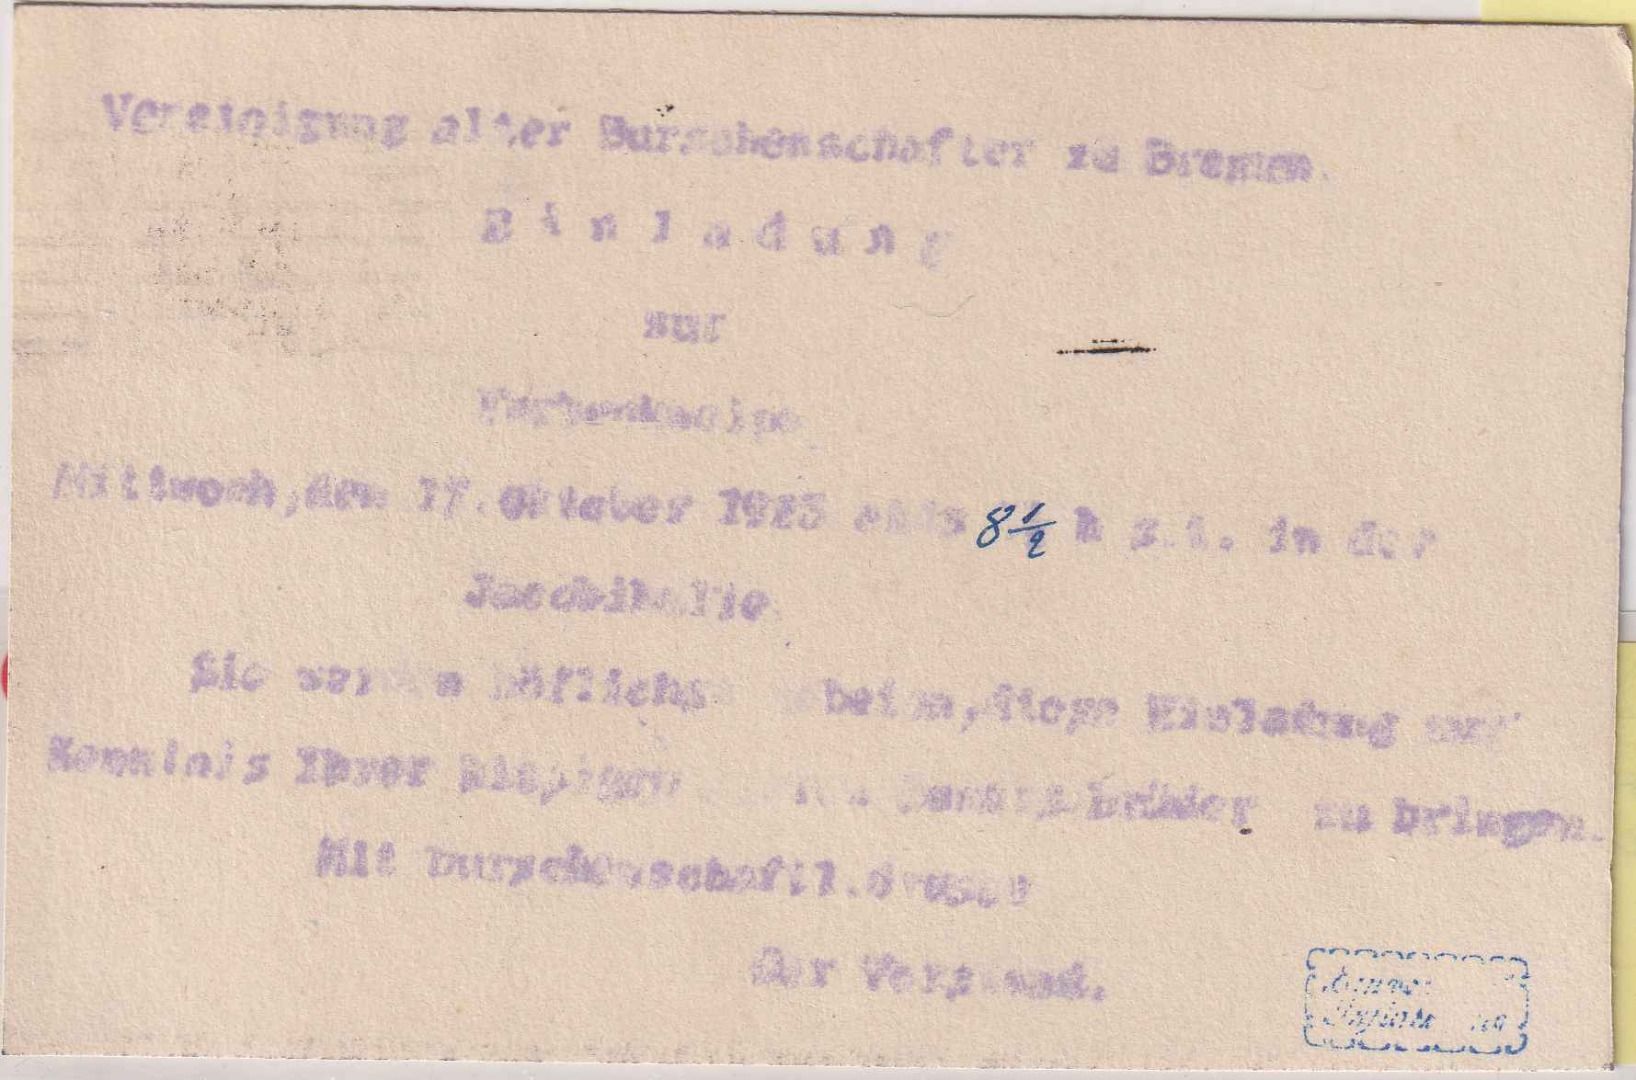 Vereinigung alter Burschenschafter zu Bremen.
Einladung
zur
Farbenkneipe
Mittwoch, den 17. Oktober 1923 8 1/2 h s.t. in der
Jacobihalle.
Sie werden höflichst gebeten, diese Einladung zur
Kenntnis Ihrer hiesigen Bundesbrüder zu bringen.
Mit burschenschaftl. Gruss
Der Vorstand.